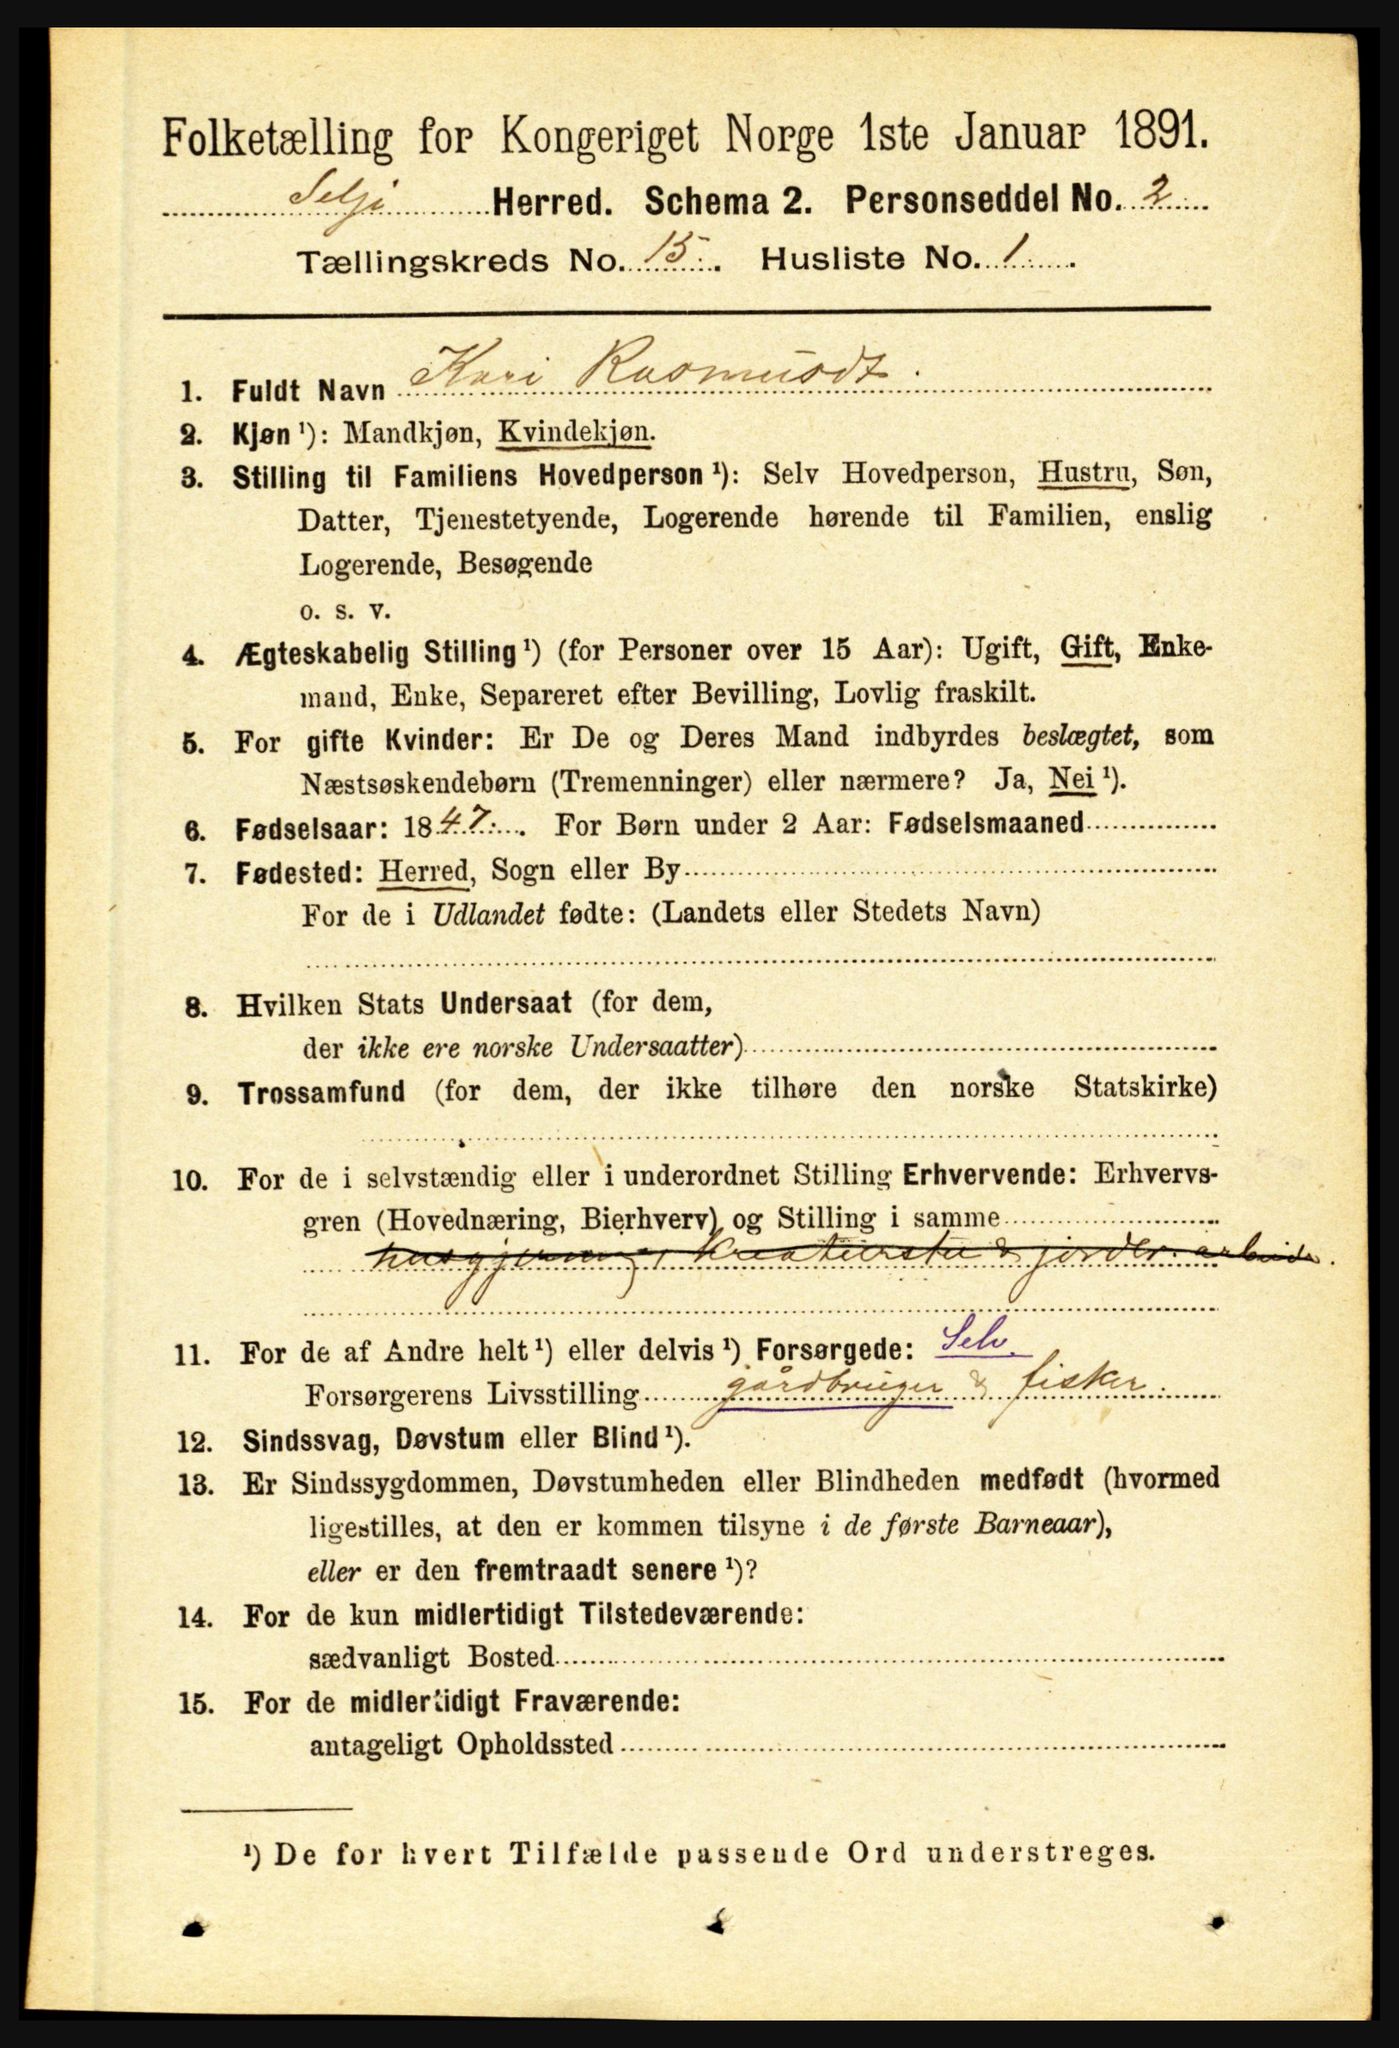 Folketælling for Kongeriget Norge 1ste Januar 1891.
Selje Herred. Schema 2. Personseddel No. 2
Tællingskreds No. 15. Husliste No. 1.
1. Fuldt Navn Kari Rasmusdt.
2. Kjøn ¹): Mandkjøn, Kvindekjøn.
3. Stilling til Familiens Hovedperson ¹): Selv Hovedperson, Hustru, Søn,
Datter, Tjenestetyende, Logerende hørende til Familien, enslig
Logerende, Besøgende
o. s. v.
4. Ægteskabelig Stilling ¹) (for Personer over 15 Aar): Ugift, Gift, Enke-
mand, Enke, Separeret efter Bevilling, Lovlig fraskilt.
5. For gifte Kvinder: Er De og Deres Mand indbyrdes beslægtet, som
Næstsøskendebørn (Tremenninger) eller nærmere? Ja, Nei ¹).
6. Fødselsaar: 1847. For Børn under 2 Aar: Fødselsmaaned
7. Fødested: Herred, Sogn eller By
For de i Udlandet fødte: (Landets eller Stedets Navn)
8. Hvilken Stats Undersaat (for dem,
der ikke ere norske Undersaatter)
9. Trossamfund (for dem, der ikke tilhøre den norske Statskirke)
10. For de i selvstændig eller i underordnet Stilling Erhvervende: Erhvervs-
gren (Hovednæring, Bierhverv) og Stilling i samme
husgjerning, kreaturstel & jordbr. arbeide.
11. For de af Andre helt ¹) eller delvis ¹) Forsørgede: Selv.
Forsørgerens Livsstilling gårdbruger & fisker.
12. Sindssvag, Døvstum eller Blind ¹).
13. Er Sindssygdommen, Døvstumheden eller Blindheden medfødt (hvormed
ligestilles, at den er kommen tilsyne i de første Barneaar),
eller er den fremtraadt senere ¹)?
14. For de kun midlertidigt Tilstedeværende:
sædvanligt Bosted
15. For de midlertidigt Fraværende:
antageligt Opholdssted
¹) De for hvert Tilfælde passende Ord understreges.